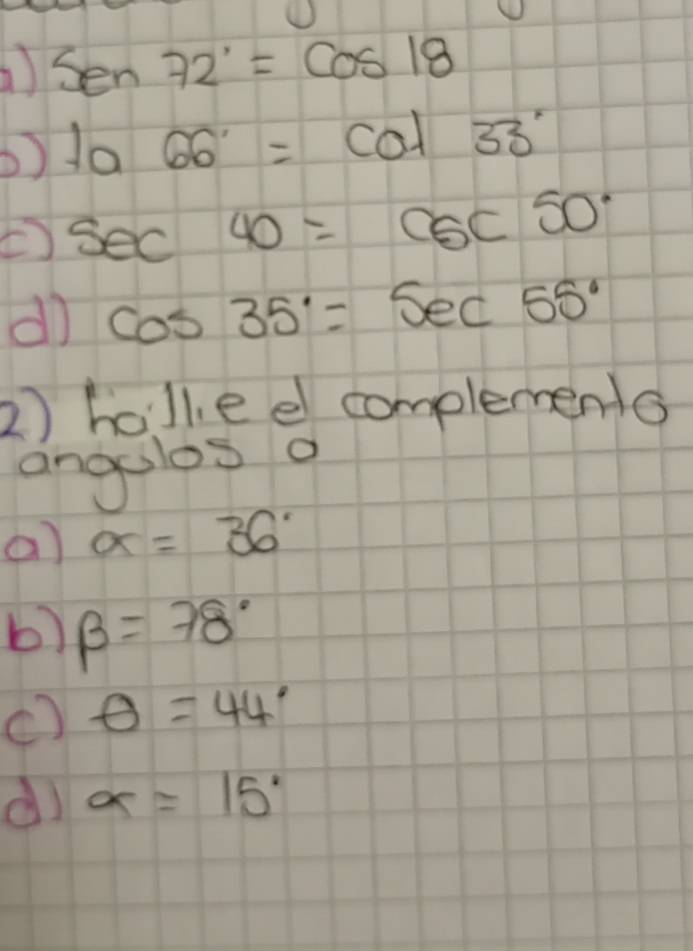 a) Sen 72° = Cos 18
b) ta 66° = cot 33°
c) Sec 40 = csc 50°
d) cos 35° = Sec 55°
2) halle el complemento
angulos a
a) α = 36°
b) β = 78°
c) θ = 44°
d) α = 15°